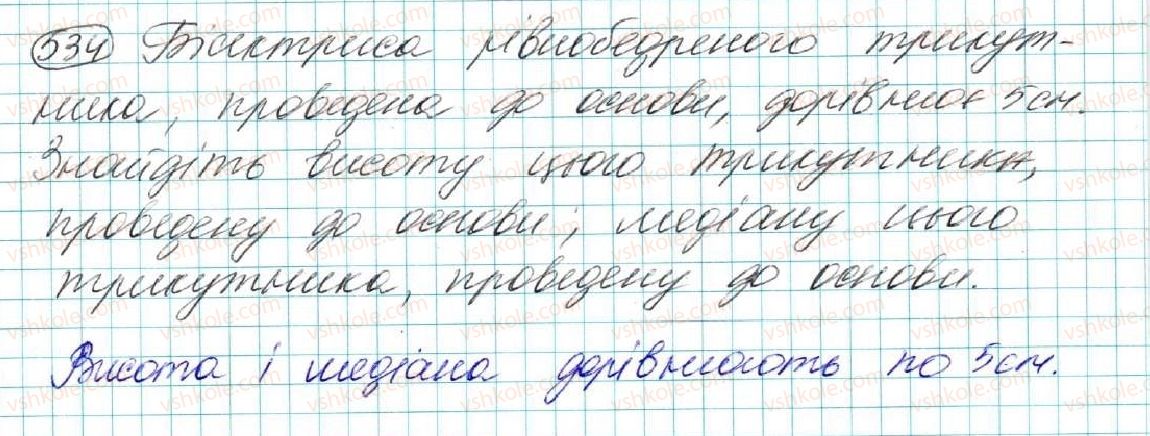 534 Бісектриса рівнобедреного трикут-
ника, проведена до основи, дорівнює 5см.
Знайдіть висоту цього трикутника,
проведену до основи; медіану цього
трикутника, проведену до основи.
Висота і медіана дорівнюють по 5см.